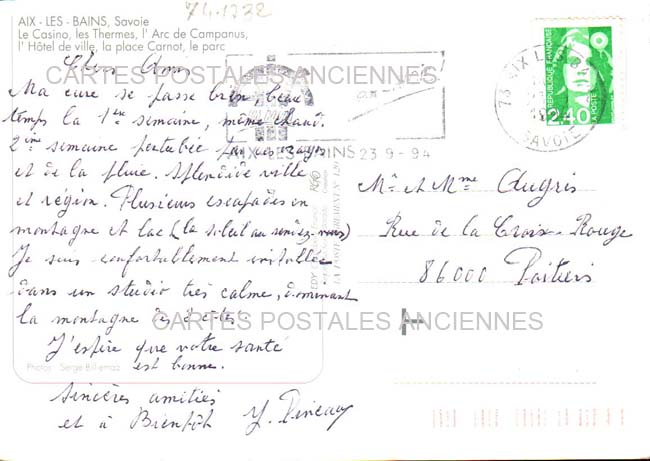 74.1232
AIX - LES - BAINS, Savoie
Le Casino, les Thermes, l' Arc de Campanus,
l' Hôtel de ville, la place Carnot, le parc
Chers Amis
CARTES POSTALES ANCIENNES
Ma cure se passe bien, beau
temps la 1ère semaine, même chaud.
2ème semaine perturbée par des orages
et de la pluie. Splendide ville
et région. Plusieurs escapades en
montagne et lac (le soleil au rendez-vous)
Je suis confortablement installée
dans un studio très calme, dominant
la montagne
CARTES POSTALES ANCIENNES
J'espère que votre santé
est bonne.
Photos : Serge Billemaz
Sincères amitiés
et à Bientôt Y. Pineau
AIX-LES-BAINS 23 9 - 94
73 AIX LES
SAVOIE
REPUBLIQUE FRANÇAISE
2,40
LA POSTE
Mr et Mme Augris
Rue de la Croix-Rouge
86000 Poitiers